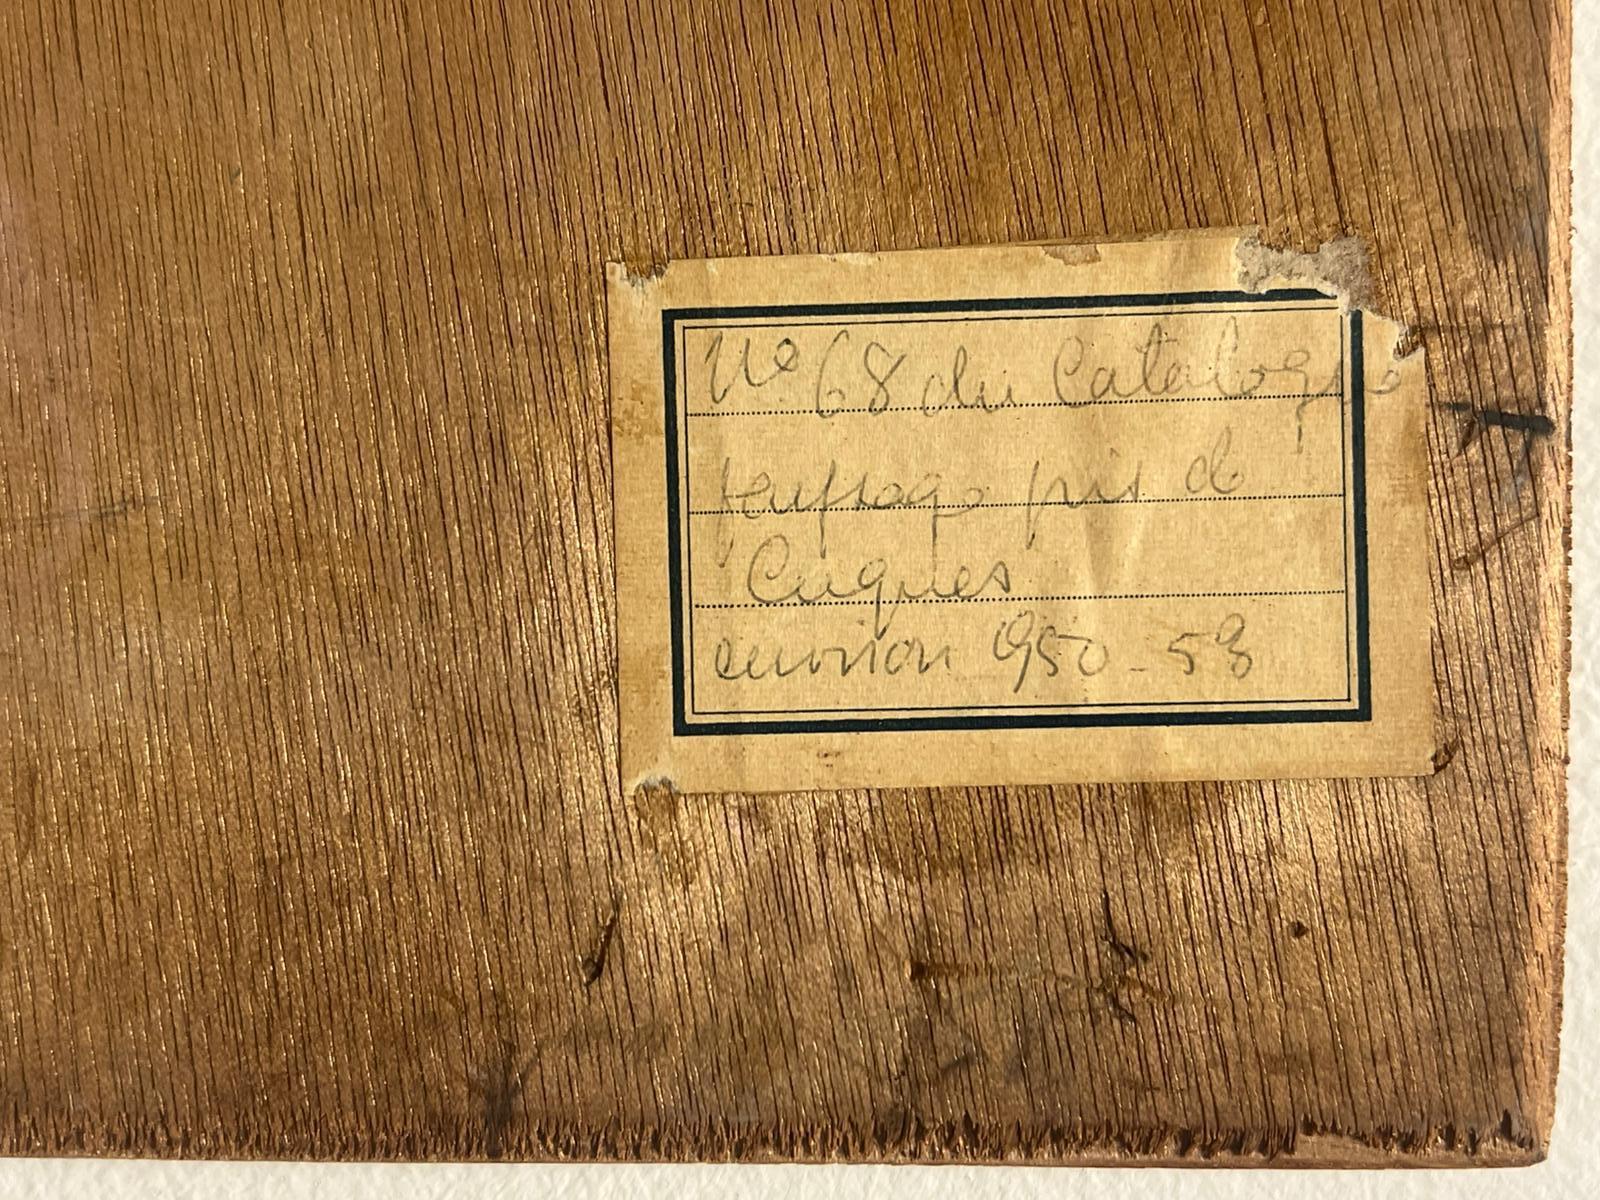 N° 68 du Catalogue
paysage pris de
Cuques
environ 950-58